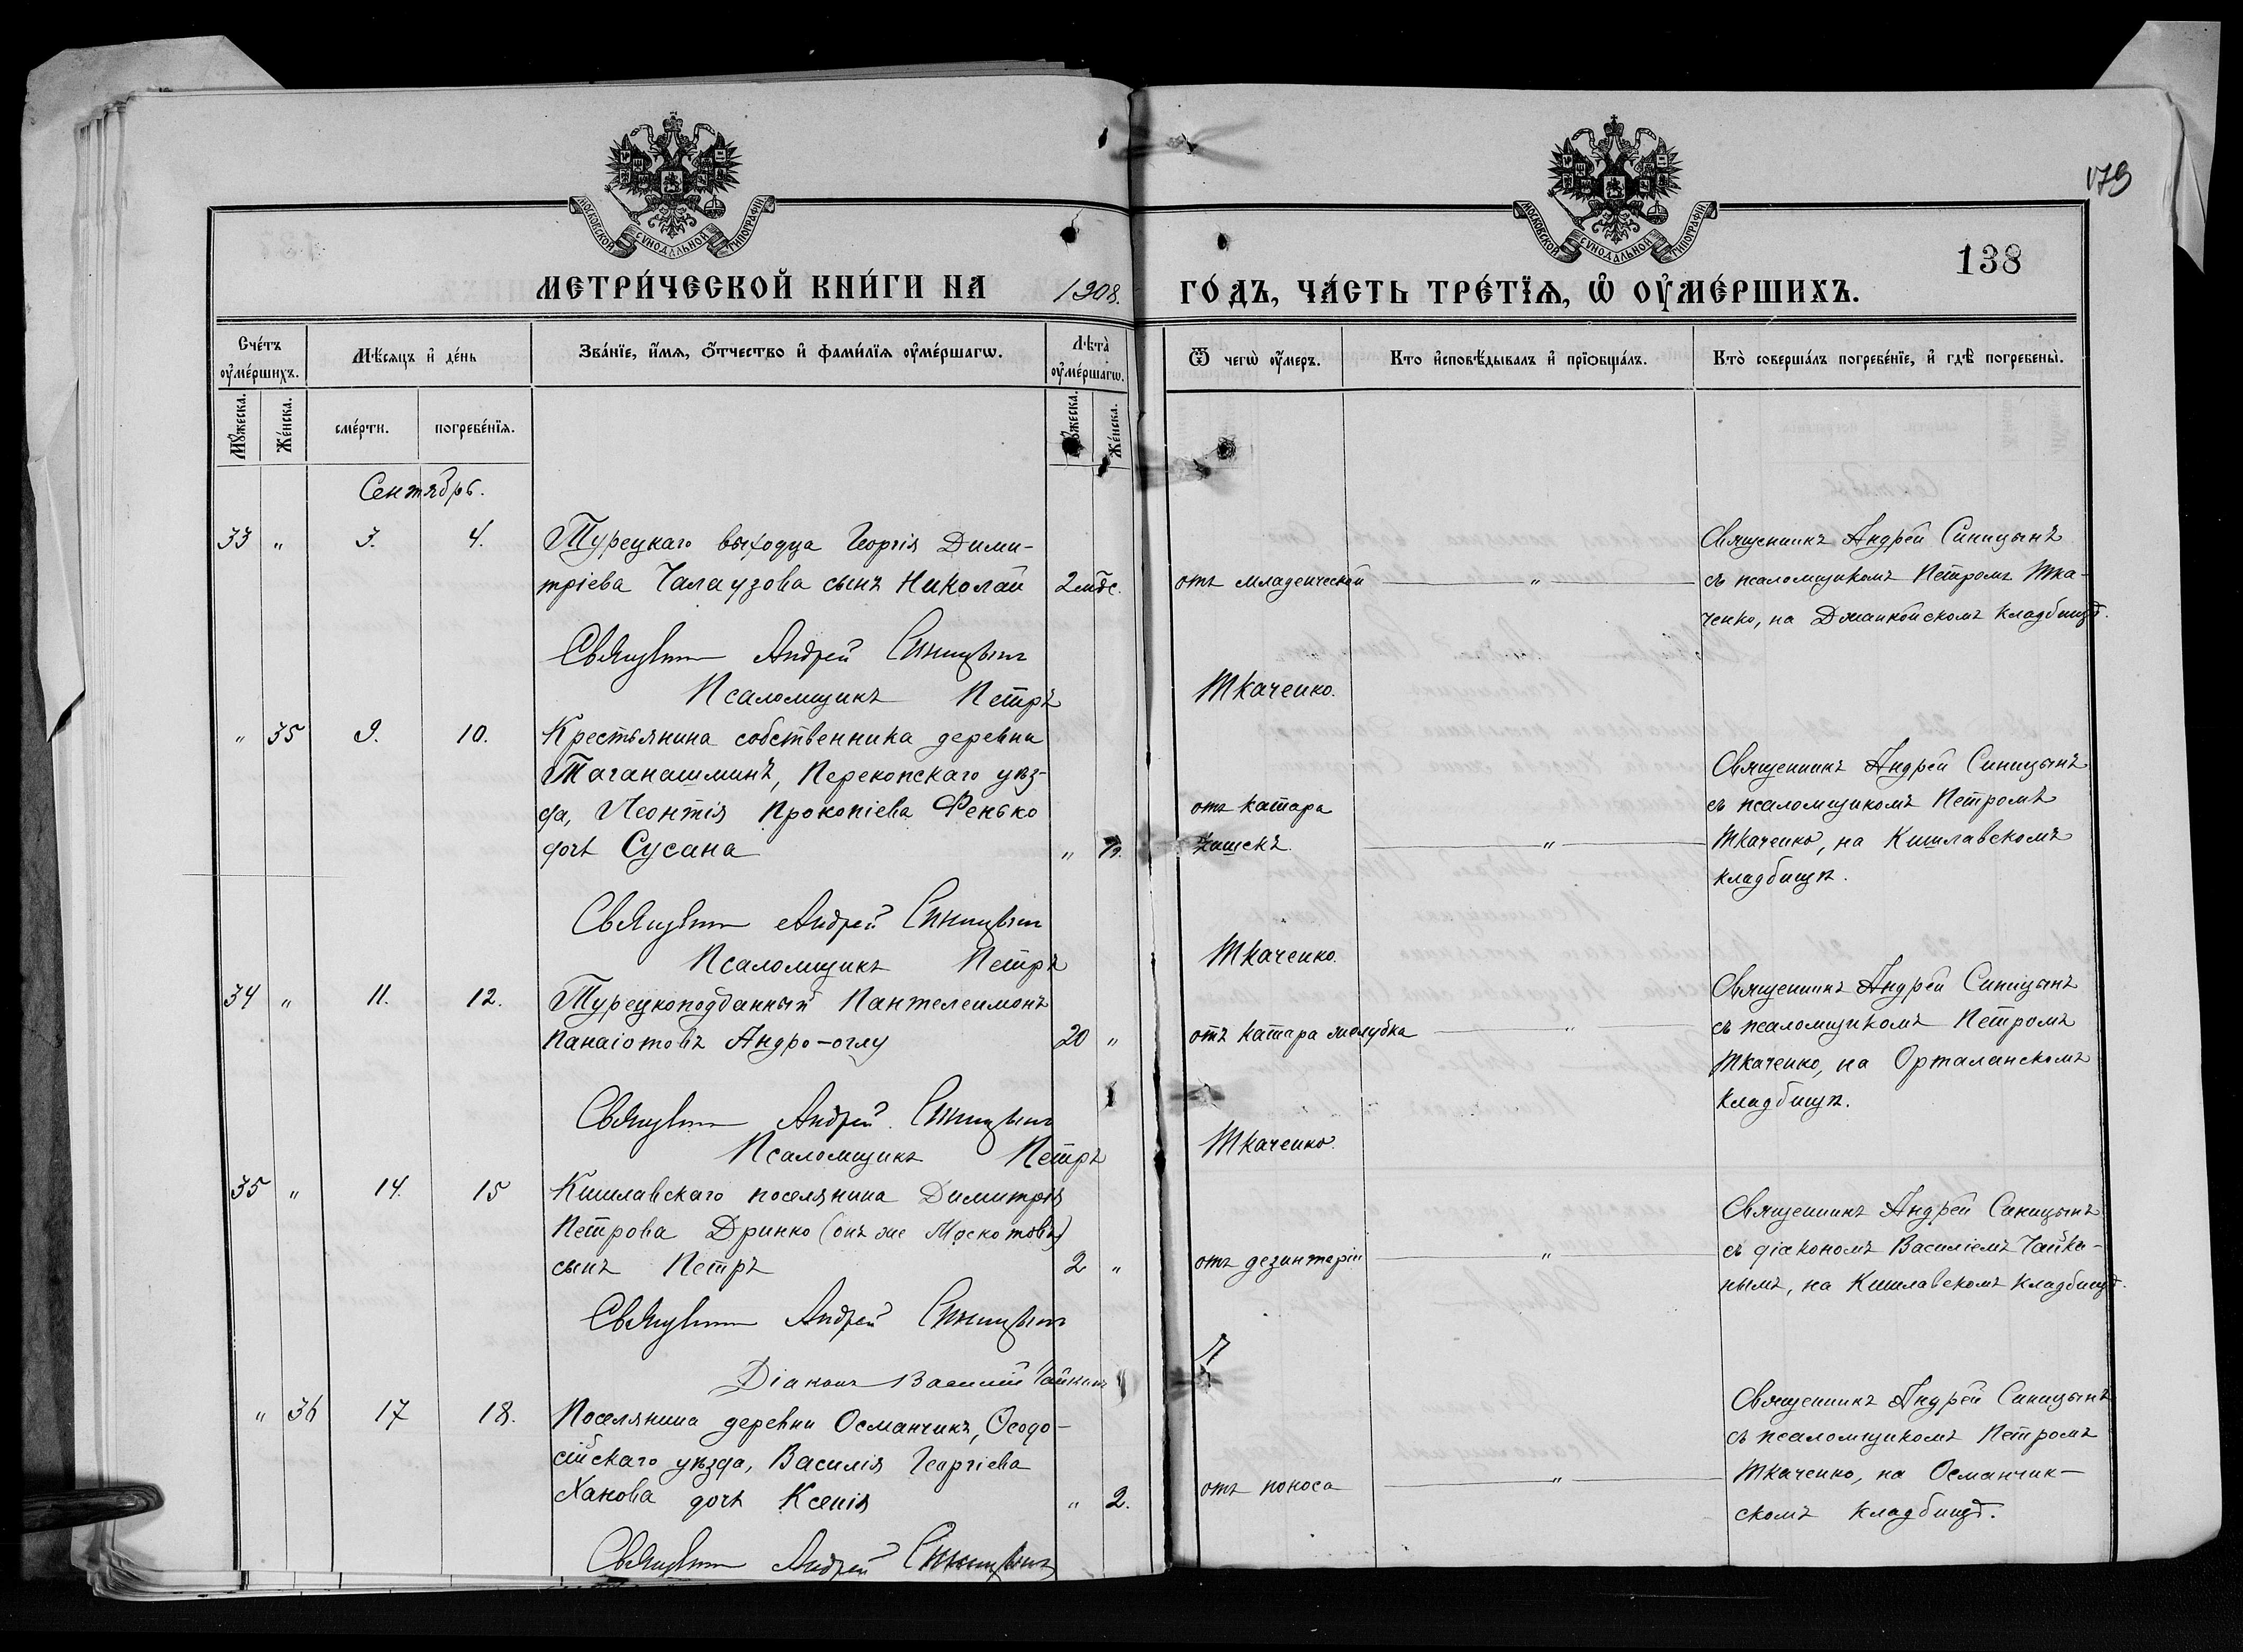 МОСКОВСКОЙ СѴНОДАЛЬНОЙ ТИПОГРАФІИ
МОСКОВСКОЙ СѴНОДАЛЬНОЙ ТИПОГРАФІИ
179
138
МЕТРИ́ЧЕСКОЙ КНИ́ГИ НА 1908. ГО́ДЪ, ЧА́СТЬ ТРЕ́ТЇѦ, Ѡ҆ ОУ҆МЕ́РШИХЪ.
Сче́тъ оу҆ме́ршихъ.
Мѣ́сяцъ и҆ де́нь
Зва́нїе, и҆́мѧ, ѻ҆́тчество и҆ фами́лїѧ оу҆ме́ршагѡ.
Лѣта̀ оу҆ме́ршагѡ.
Ѿ чегѡ̀ оу҆́меръ.
Кто и҆сповѣ́дывалъ и҆ прїѡбща́лъ.
Кто̀ соверша́лъ погребе́нїе, и҆ гдѣ̀ погребены̀.
Мꙋ́жеска.
Же́нска.
сме́рти.
погребе́нїѧ.
Мꙋ́жеска.
Же́нска.
Сентябрь.
33 " 3. 4. Турецкаго выходца Георгія Дими-
тріева Чалаузова сынъ Николай 2 мѣс.
отъ младенческой "
Священникъ Андрей Синицынъ
съ псаломщикомъ Петромъ Тка-
ченко, на Джанкойскомъ кладбищѣ.
Священникъ Андрей Синицынъ
Псаломщикъ Петръ Ткаченко.
" 35 9. 10. Крестьянина собственника деревни
Таганашминъ, Перекопскаго уѣз-
да, Леонтія Прокопіева Фенько
дочь Сусана "
отъ катара
кишекъ. "
Священникъ Андрей Синицынъ
съ псаломщикомъ Петромъ
Ткаченко, на Кишлавскомъ
кладбищѣ.
Священникъ Андрей Синицынъ
Псаломщикъ Петръ Ткаченко.
34 " 11. 12. Турецкоподданный Пантелеимонъ
Панаіотовъ Андро-оглу 20 "
отъ катара желудка "
Священникъ Андрей Синицынъ
съ псаломщикомъ Петромъ
Ткаченко, на Орталанскомъ
кладбищѣ.
Священникъ Андрей Синицынъ
Псаломщикъ Петръ Ткаченко.
35 " 14. 15 Кишлавскаго поселянина Димитрія
Петрова Дринко (онъ же Москотовъ)
сынъ Петръ 2 "
отъ дезинтеріи "
Священникъ Андрей Синицынъ
съ діакономъ Василіемъ Чайки-
нымъ, на Кишлавскомъ кладбищѣ.
Священникъ Андрей Синицынъ
Діаконъ Василій Чайкинъ
" 36 17 18. Поселянина деревни Османчикъ, Ѳеодо-
сійскаго уѣзда, Василія Георгіева
Ханова дочь Ксенія " 2.
отъ поноса "
Священникъ Андрей Синицынъ
съ псаломщикомъ Петромъ
Ткаченко, на Османчик-
скомъ кладбищѣ.
Священникъ Андрей Синицынъ